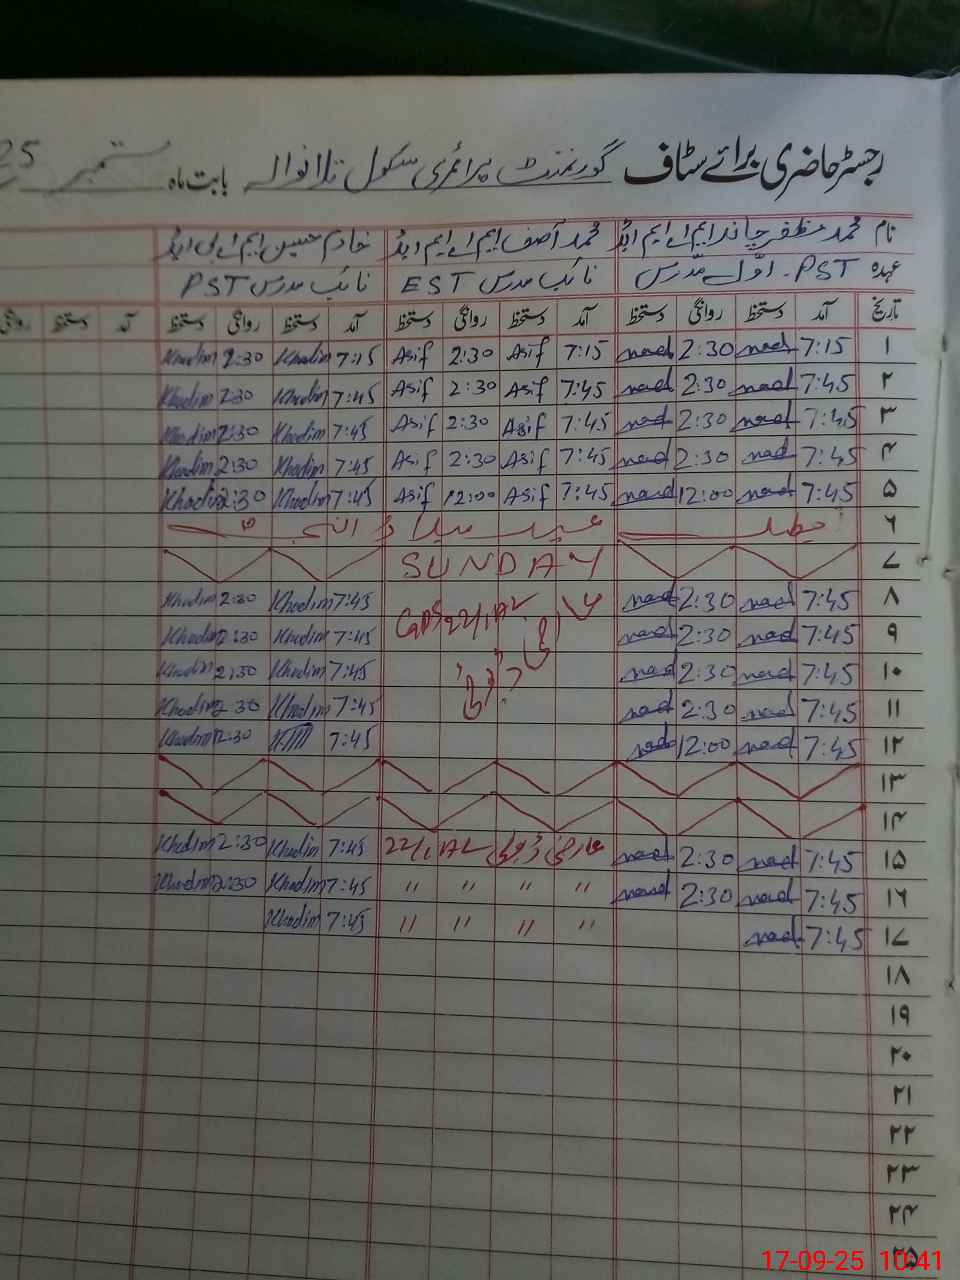 رجسٹر حاضری برائے سٹاف گورنمنٹ پرائمری سکول تلانوالہ بابت ماہ ستمبر 25
نام محمد مظفر چاند ایم اے ایم ایڈ محمد آصف ایم اے ایم ایڈ خادم حسین ایم اے بی ایڈ
عہدہ PST۔ اوّل مدرس نائب مدرس EST نائب مدرس PST
تاریخ آمد دستخط روانگی دستخط آمد دستخط روانگی دستخط آمد دستخط روانگی دستخط آمد دستخط روانگی
۱ 7:15 nad 2:30 nad 7:15 Asif 2:30 Asif 7:15 Khadim 2:30 Khadim
۲ 7:45 nad 2:30 nad 7:45 Asif 2:30 Asif 7:45 Khadim 2:30 Khadim
۳ 7:45 nad 2:30 nad 7:45 Asif 2:30 Asif 7:45 Khadim 2:30 Khadim
۴ 7:45 nad 2:30 nad 7:45 Asif 2:30 Asif 7:45 Khadim 2:30 Khadim
۵ 7:45 nad 12:00 nad 7:45 Asif 12:00 Asif 7:45 Khadim 2:30 Khadim
۶ تعطیل عید میلاد النبی
۷ SUNDAY
۸ 7:45 nad 2:30 nad عارضی ڈیوٹی GPS 22/1AL 7:45 Khadim 2:30 Khadim
۹ 7:45 nad 2:30 nad 7:45 Khadim 2:30 Khadim
۱۰ 7:45 nad 2:30 nad 7:45 Khadim 2:30 Khadim
۱۱ 7:45 nad 2:30 nad 7:45 Khadim 2:30 Khadim
۱۲ 7:45 nad 12:00 nad 7:45 12:30 Khadim
۱۳
۱۴
۱۵ 7:45 nad 2:30 nad عارضی ڈیوٹی 22/1AL 7:45 Khadim 2:30 Khadim
۱۶ 7:45 nad 2:30 nad " " " " 7:45 Khadim 2:30 Khadim
۱۷ 7:45 nad " " " " 7:45 Khadim
۱۸
۱۹
۲۰
۲۱
۲۲
۲۳
۲۴
۲۵
17-09-25 10:41